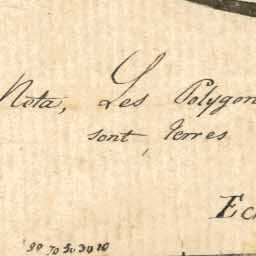 Nota, Les Polygon
sont, terres
Ec
90 70 50 30 10